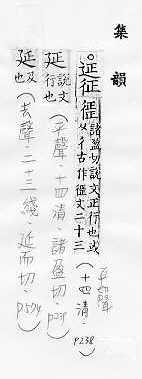 集韻
。延征𢓊諸盈切說文正行也或
从彳古作𢓊文二十三
平聲
(十四清.
P238)
延說文
行也
(平聲.十四清.諸盈切.
P239)
延及
也
(去聲.二十三綫.延面切.
P574)